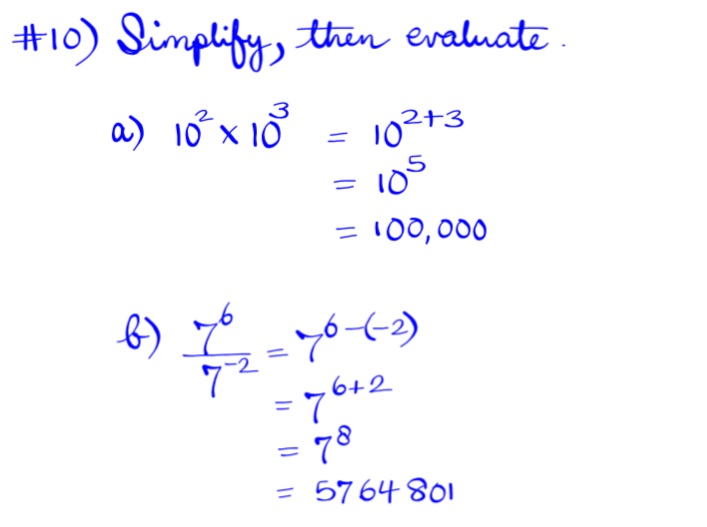 #10) Simplify, then evaluate.
a) 10² × 10³ = 10²⁺³
= 10⁵
= 100,000
b) 7⁶/7⁻² = 7⁶⁻⁽⁻²⁾
= 7⁶⁺²
= 7⁸
= 5764801